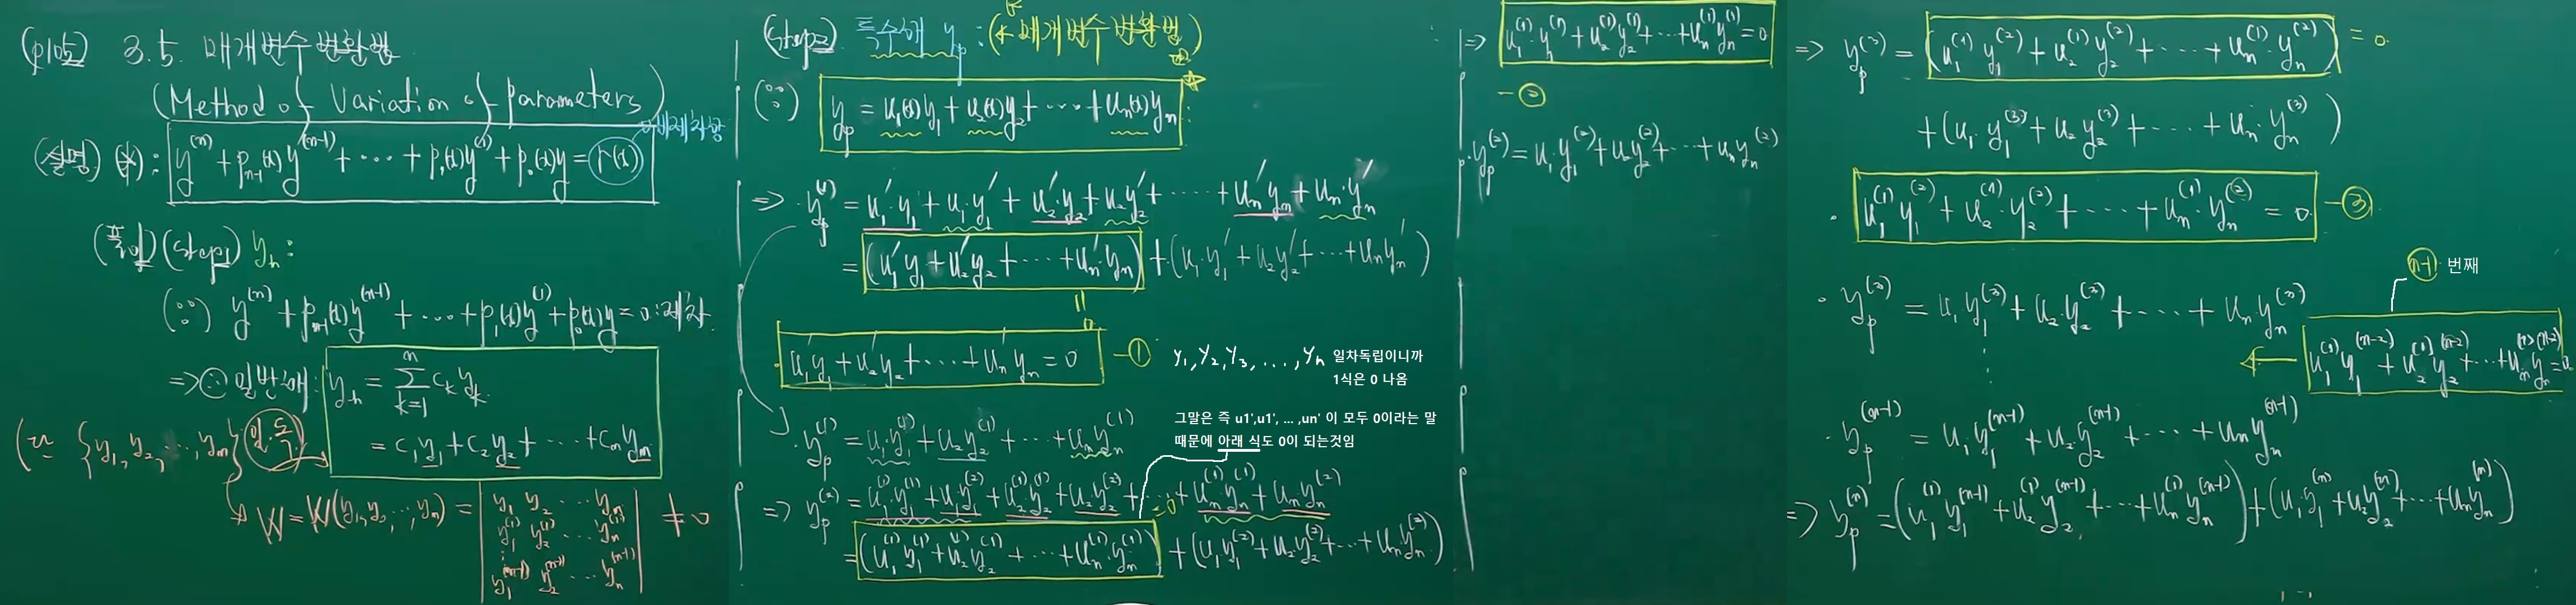 (p105) 3.5. 매개변수변환법
(Method of Variation of parameters)
(설명) (*): y^(n) + p_{n-1}(x)y^(n-1) + ⋯ + p_1(x)y^(1) + p_0(x)y = r(x)
(풀이) (step1) y_h:
(∵) y^(n) + p_{n-1}(x)y^(n-1) + ⋯ + p_1(x)y^(1) + p_0(x)y = 0 : 제차.
=> ∴ 일반해: y_h = Σ_{k=1}^{n} c_k y_k
= c_1y_1 + c_2y_2 + ⋯ + c_ny_n
{y_1, y_2, ⋯, y_n} 일.독
W = W(y_1, y_2, ⋯, y_n) = | y_1 y_2 ⋯ y_n
y_1^(1) y_2^(1) ⋯ y_n^(1)
⋮
y_1^(n-1) y_2^(n-1) ⋯ y_n^(n-1) | ≠ 0
(step2) 특수해 y_p : (* 매개변수변환법)
(∵) y_p = u_1(x)y_1 + u_2(x)y_2 + ⋯ + u_n(x)y_n
=> y_p^(1) = u_1'·y_1 + u_1·y_1' + u_2'·y_2 + u_2·y_2' + ⋯ + u_n'·y_n + u_n·y_n'
= (u_1'y_1 + u_2'y_2 + ⋯ + u_n'·y_n) + (u_1·y_1' + u_2y_2' + ⋯ + u_ny_n')
|| 0
u_1'y_1 + u_2'y_2 + ⋯ + u_n'y_n = 0 - ①
y_1, y_2, y_3, ..., y_n 일차독립이니까
1식은 0 나옴
그말은 즉 u1',u1', ... ,un' 이 모두 0이라는 말
때문에 아래 식도 0이 되는것임
·y_p^(1) = u_1y_1^(1) + u_2y_2^(1) + ⋯ + u_ny_n^(1)
=> y_p^(2) = u_1^(1)·y_1^(1) + u_1y_1^(2) + u_2^(1)·y_2^(1) + u_2y_2^(2) + ⋯ + u_n^(1)·y_n^(1) + u_ny_n^(2)
= (u_1^(1)y_1^(1) + u_2^(1)y_2^(1) + ⋯ + u_n^(1)·y_n^(1)) + (u_1y_1^(2) + u_2y_2^(2) + ⋯ + u_ny_n^(2))
=0
=> u_1^(1)·y_1^(1) + u_2^(1)y_2^(1) + ⋯ + u_n^(1)y_n^(1) = 0
- ②
·y_p^(2) = u_1·y_1^(2) + u_2y_2^(2) + ⋯ + u_ny_n^(2)
=> y_p^(3) = (u_1^(1)y_1^(2) + u_2^(1)y_2^(2) + ⋯ + u_n^(1)·y_n^(2)) = 0
+ (u_1·y_1^(3) + u_2y_2^(3) + ⋯ + u_n·y_n^(3))
·u_1^(1)y_1^(2) + u_2^(1)·y_2^(2) + ⋯ + u_n^(1)·y_n^(2) = 0 - ③
n-1 번째
·y_p^(3) = u_1y_1^(3) + u_2y_2^(3) + ⋯ + u_ny_n^(3)
u_1^(1)y_1^(n-2) + u_2^(1)y_2^(n-2) + ⋯ + u_n^(1)y_n^(n-2) = 0
⋮
·y_p^(n-1) = u_1y_1^(n-1) + u_2·y_2^(n-1) + ⋯ + u_ny_n^(n-1)
=> y_p^(n) = (u_1^(1)y_1^(n-1) + u_2^(1)y_2^(n-1) + ⋯ + u_n^(1)y_n^(n-1)) + (u_1y_1^(n) + u_2y_2^(n) + ⋯ + u_ny_n^(n))